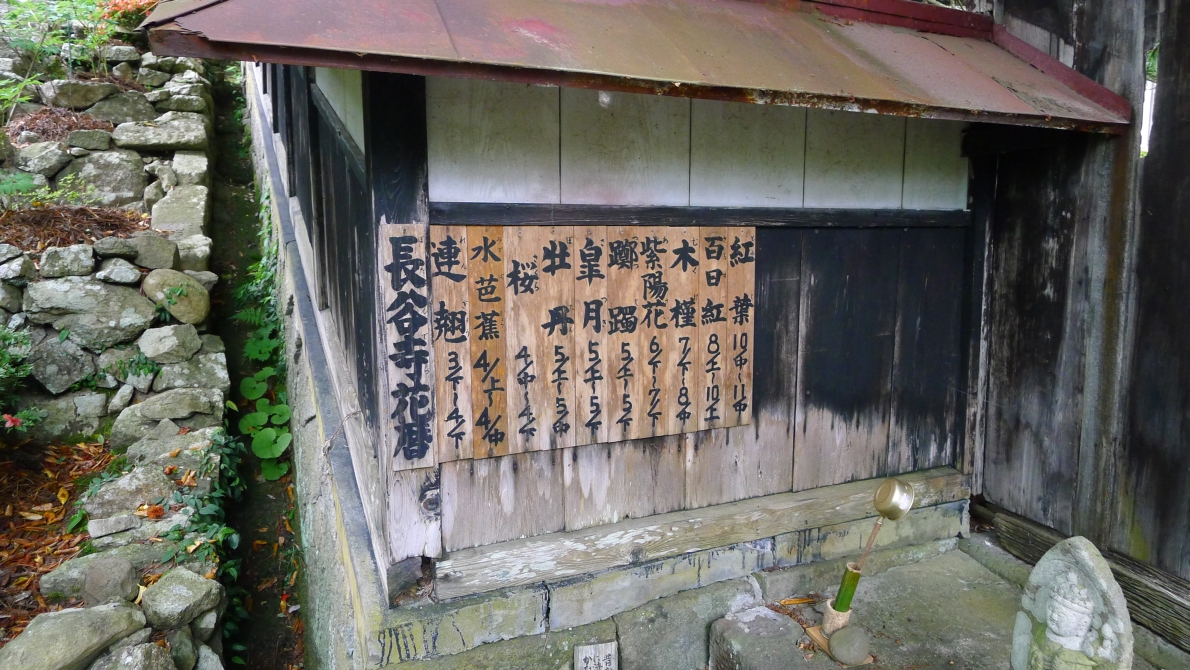 長谷寺花暦
連翹 3/下~4/下
水芭蕉 4/上~4/中
桜 4/中~4/下
牡丹 5/上~5/中
皐月 5/上~5/下
躑躅 5/上~5/下
紫陽花 6/下~7/下
木槿 7/下~8/中
百日紅 8/上~10/上
紅葉 10/中~11/中